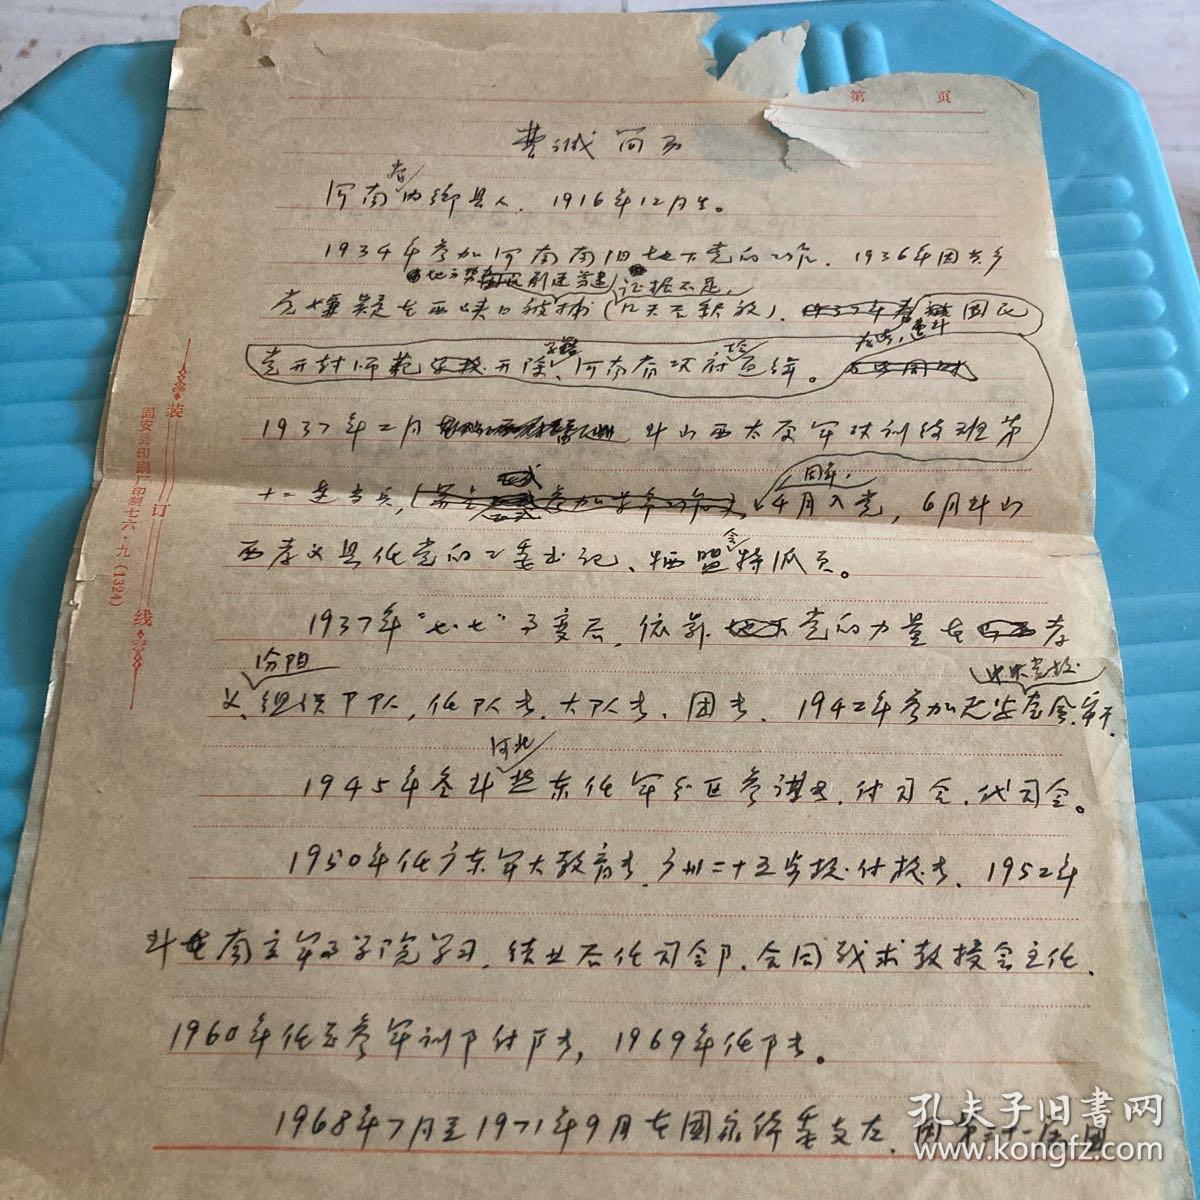 第 页
费诚简历
河南省内乡县人．1916年12月生。
1934年参加河南南阳地下党的工作．1936年因共
党嫌疑在西峡口被捕（几天后释放）．国民
由地方势 证据不足，
党开封师范开除、河南省政府通缉。
1937年二月 到山西太原军政训练班第
十二连当兵， 4月入党，6月到山
同年，
西孝义县任党的工委书记、牺盟会特派员。
1937年“七·七”事变后，依靠党的力量在孝
汾阳 中央党校
义、组织部队，任队长、大队长、团长．1942年参加延安整风、审干．
河北
1945年冬到冀东任军分区参谋长．付司令．代司令。
1950年任广东军大教育长．广州二十五步校·付校长．1952年
到南京军事学院学习．结业后任司令部．合同战术教授会主任．
1960年任总参军训部付部长，1969年任部长。
1968年7月至1971年9月在国家体委支左．
装订线
固安县印刷厂印制七六·九（1324）
孔夫子旧书网
www.kongfz.com